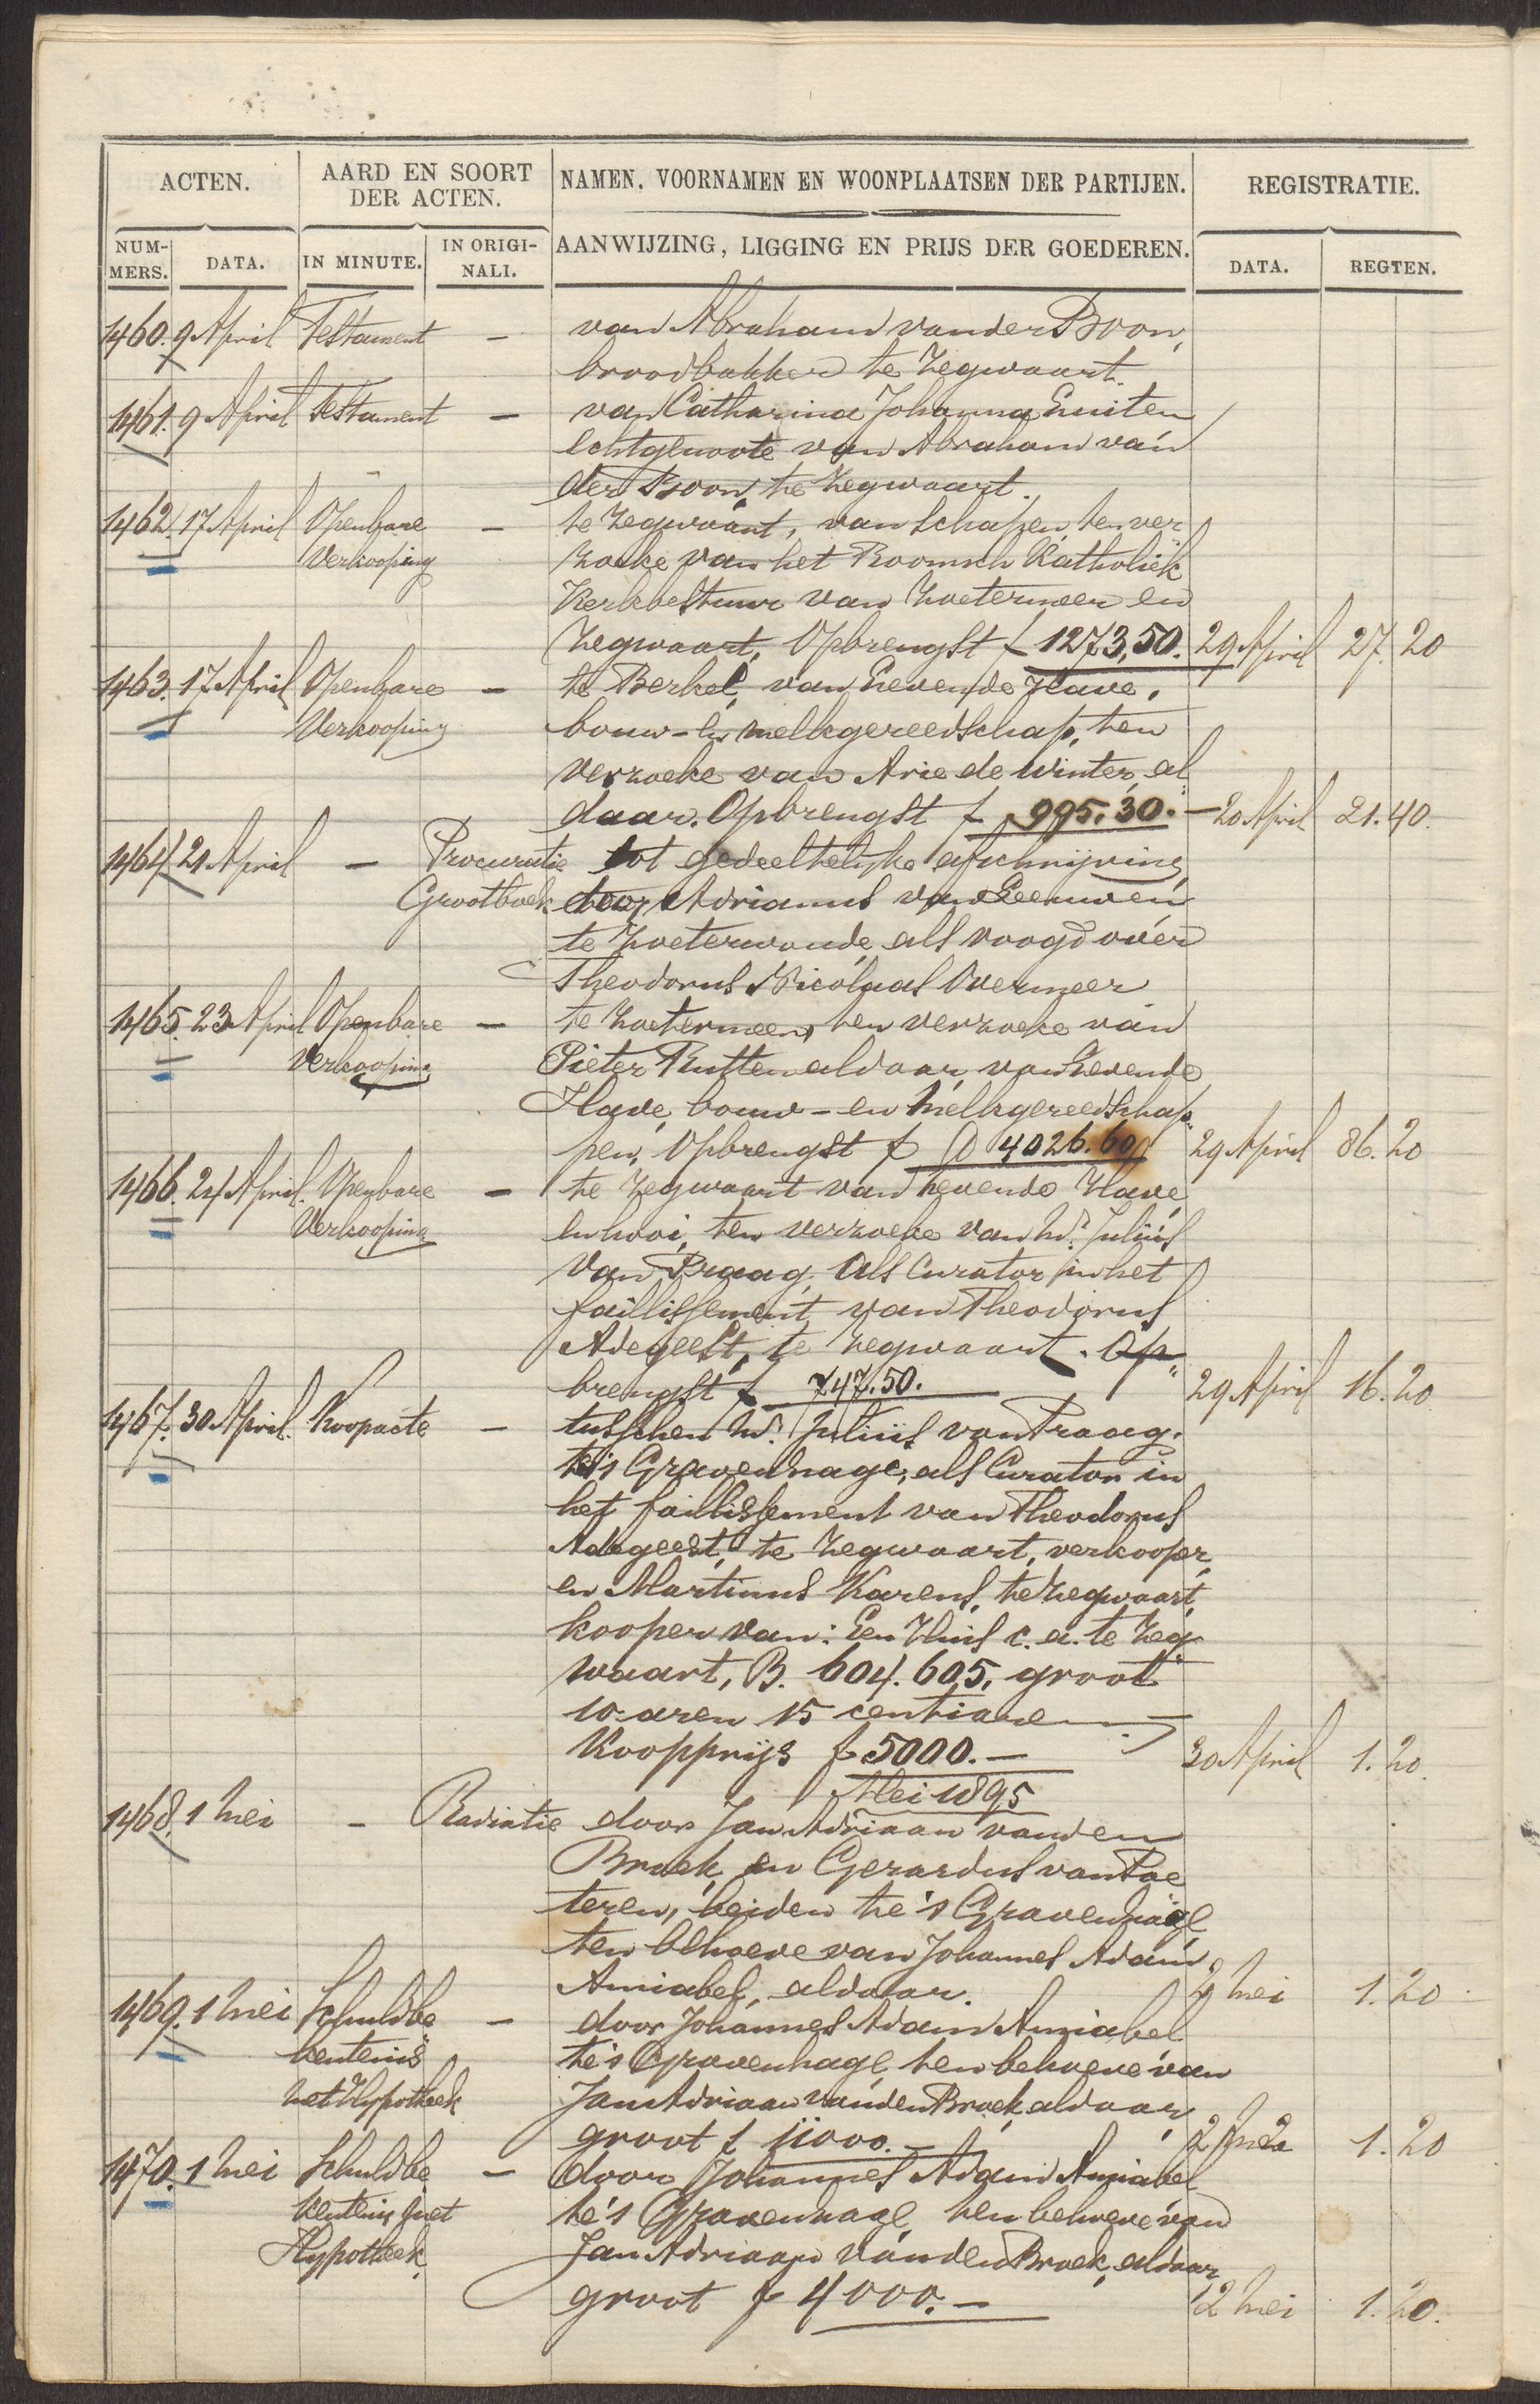 ACTEN. AARD EN SOORT DER ACTEN. NAMEN, VOORNAMEN EN WOONPLAATSEN DER PARTIJEN. REGISTRATIE.
NUMMERS. DATA. IN MINUTE. IN ORIGINALI. AANWIJZING, LIGGING EN PRIJS DER GOEDEREN. DATA. REGTEN.
1460. 9 April Testament – van Abraham van der Boon,
broodbakker te Zegwaart.
1461. 9 April Testament – van Catharina Johanna
echtgenoote van Abraham van
der Boon, te Zegwaart.
1462. 17 April Openbare – te Zegwaart, van schapen, ten ver
Verkooping zoeke van het Roomsch Katholiek
Kerkbestuur van Zoetermeer en
Zegwaart, Opbrengst f 1273,50. 29 April 27.20
1463. 17 April Openbare – te Berkel, van Levende Have,
Verkooping bouw- en melkgereedschap, ten
verzoeke van Arie de Winter, al
daar. Opbrengst f 995.30. – 20 April 21.40.
1464 21 April – Procuratie tot gedeeltelijke afschrijving
Grootboek door Adrianus van Leeuwen
te Zoeterwoude, als voogd over
Theodorus Nicolaas Overmeer
1465. 23 April Openbare – te Zoetermeer, ten verzoeke van
Verkooping Pieter Rutten aldaar, van Levende
Have, bouw- en melkgereedschap
pen, Opbrengst f 4026.60 29 April 86.20
1466. 24 April. Openbare – te Zegwaart van Levende Have
Verkooping en hooi, ten verzoeke van Mr. Julius
van Praag, als Curator in het
faillissement van Theodorus
Adegeest, te Zegwaart. Op„
brengst f 747.50. 29 April 16.20
1467. 30 April. Koopacte – tusschen Mr. Julius van Praag.
te 's Gravenhage, als Curator in
het faillissement van Theodorus
Adegeest, te Zegwaart, verkooper,
en Martinus Karens, te Zegwaart,
kooper van: Een Huis c.a. te Zeg
waart, B. 604. 605, groot
10 aren 15 centiare
Koopprijs f 5000. – 30 April 1.20.
Mei 1895
1468. 1 Mei – Radiatie door Jan Adriaan van den
Broek en Gerardus van Poe
teren, beiden te 's Gravenhage
ten behoeve van Johannes Adam
Amiabel, aldaar. 2 Mei 1.20
1469. 1 Mei Schuldbe – door Johannes Adam Amiabel
kentenis te 's Gravenhage, ten behoeve van
met Hypotheek Jan Adriaan van den Broek, aldaar,
groot f 11000. – 2 1.20
1470. 1 Mei Schuldbe – door Johannes Adam Amiabel
kentenis met te 's Gravenhage, ten behoeve van
Hypotheek. Jan Adriaan van den Broek, aldaar
groot f 4000. – 2 Mei 1.20.